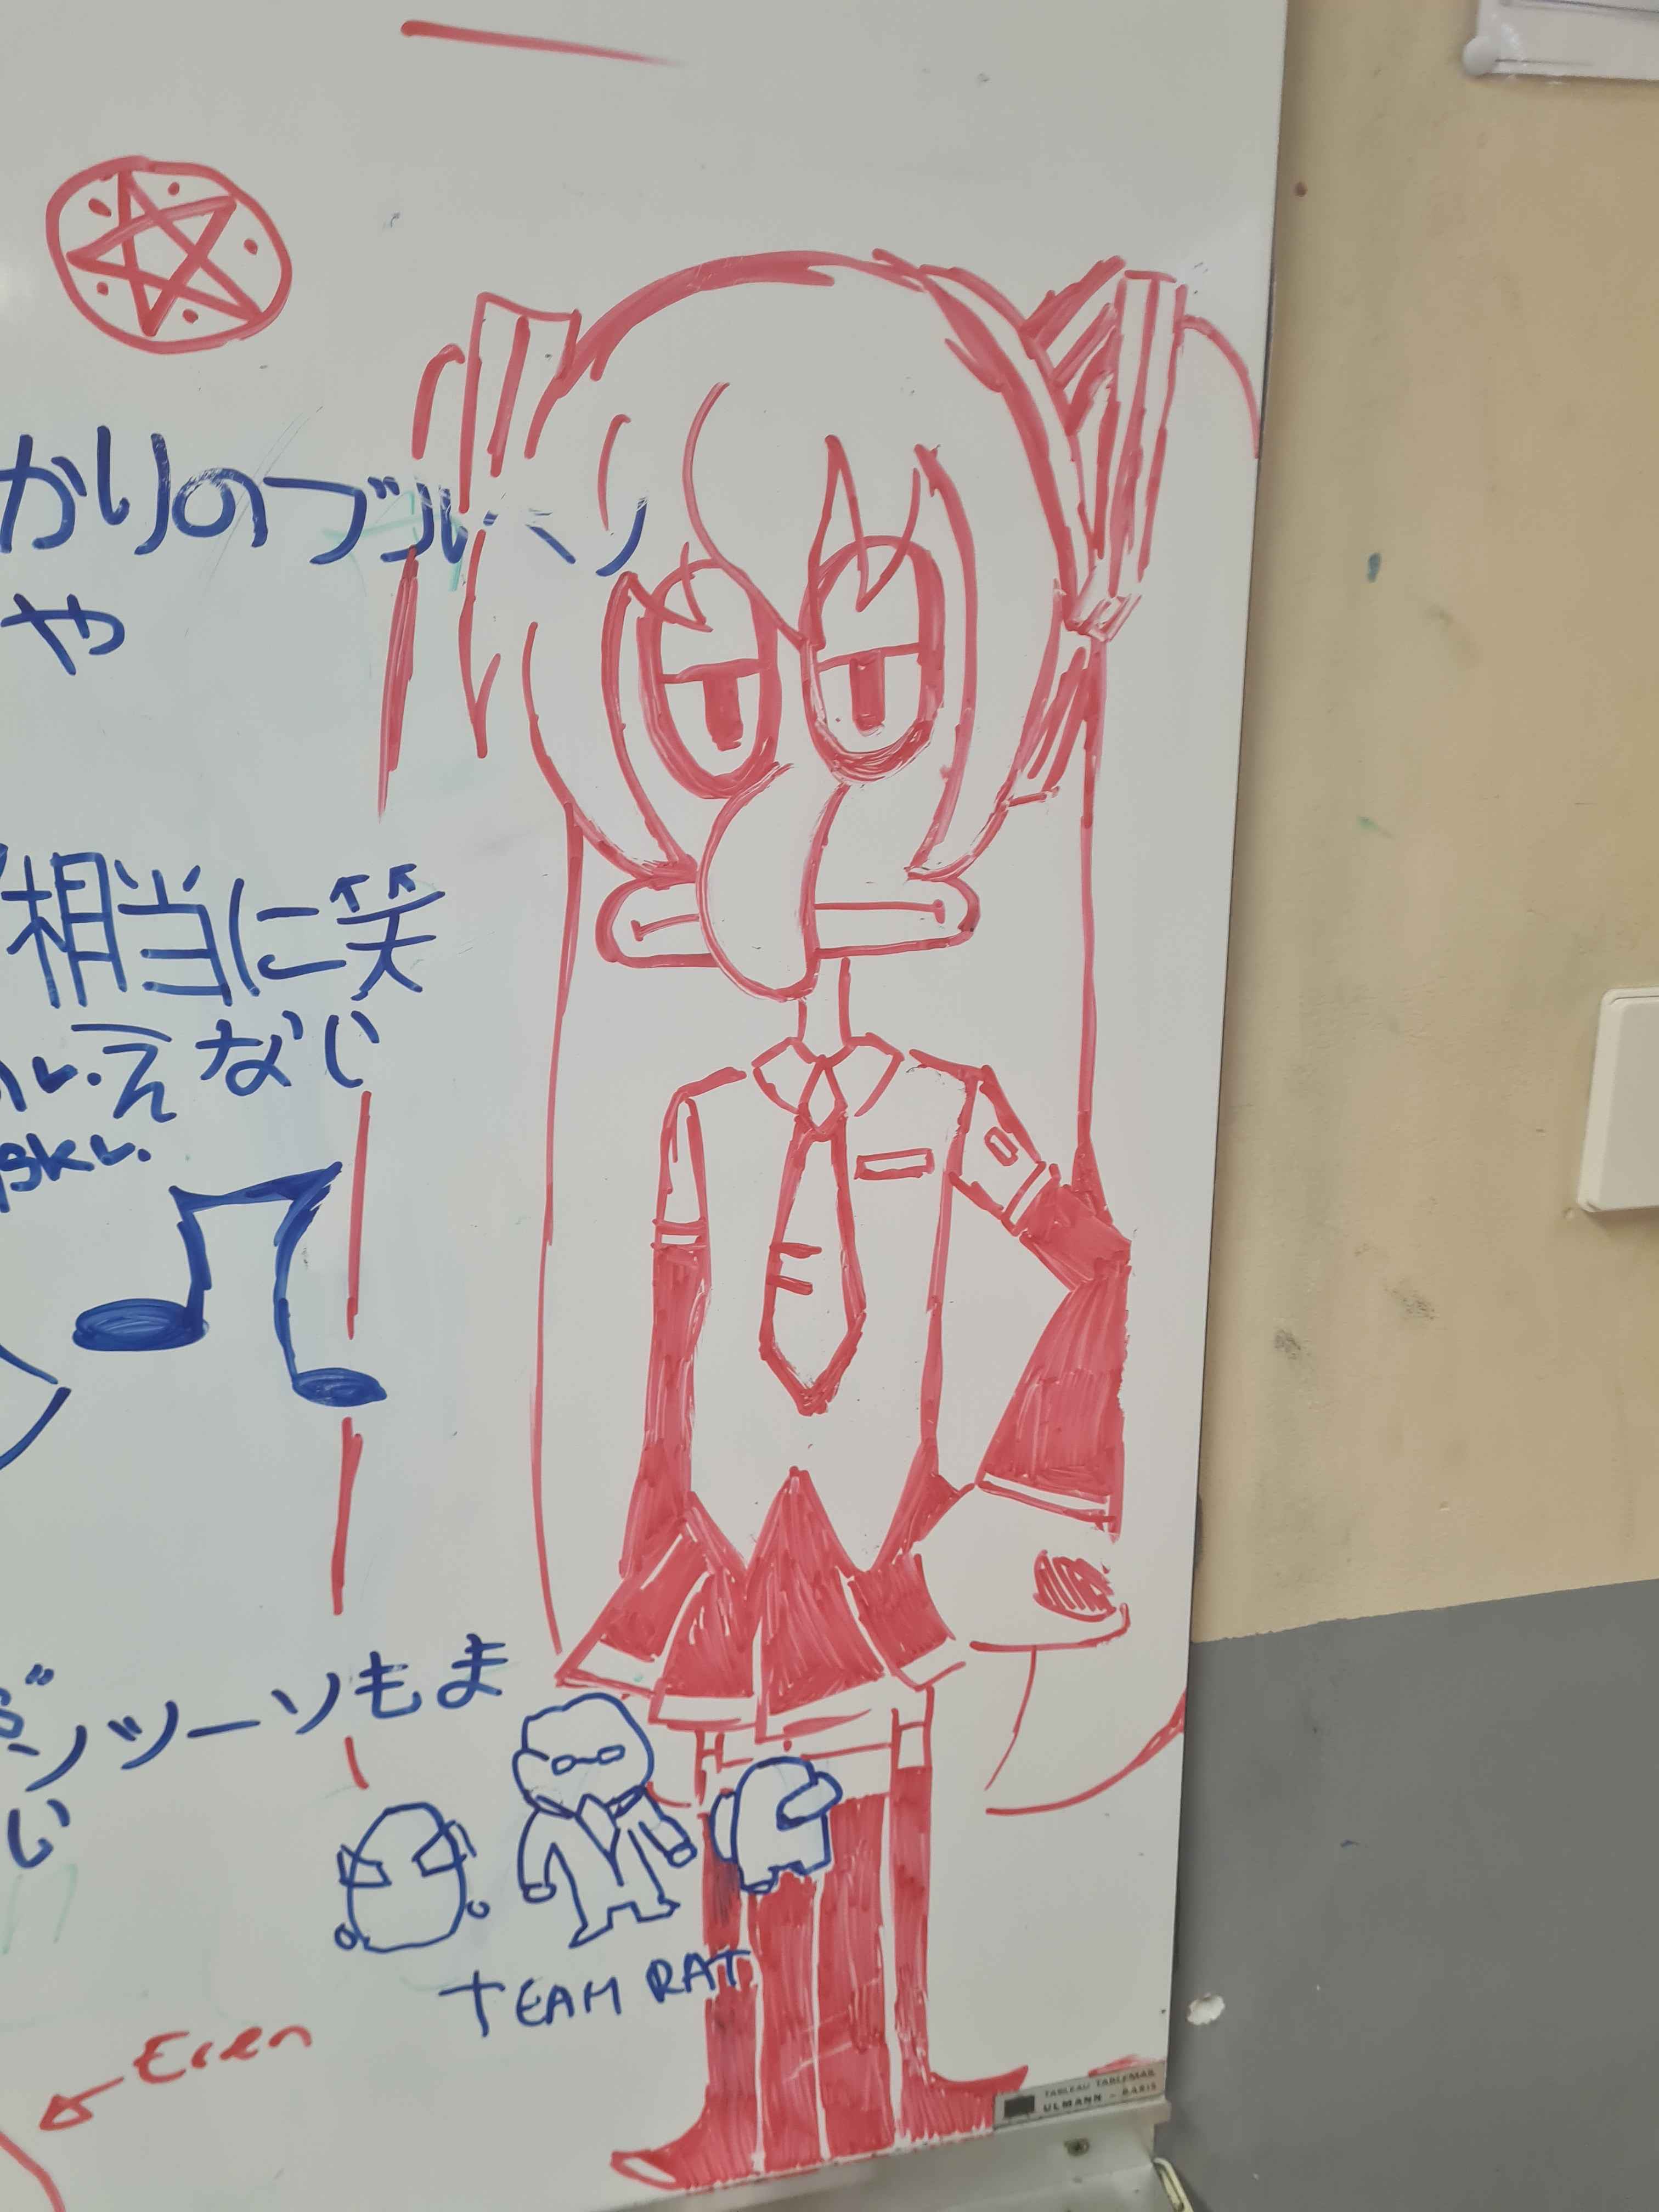 かりのブルペン
や
相当に笑
えなじ
ツーソもま
い
TEAM RAT
Eren
TABLEAU TABLEMAIL
ULMANN - PARIS